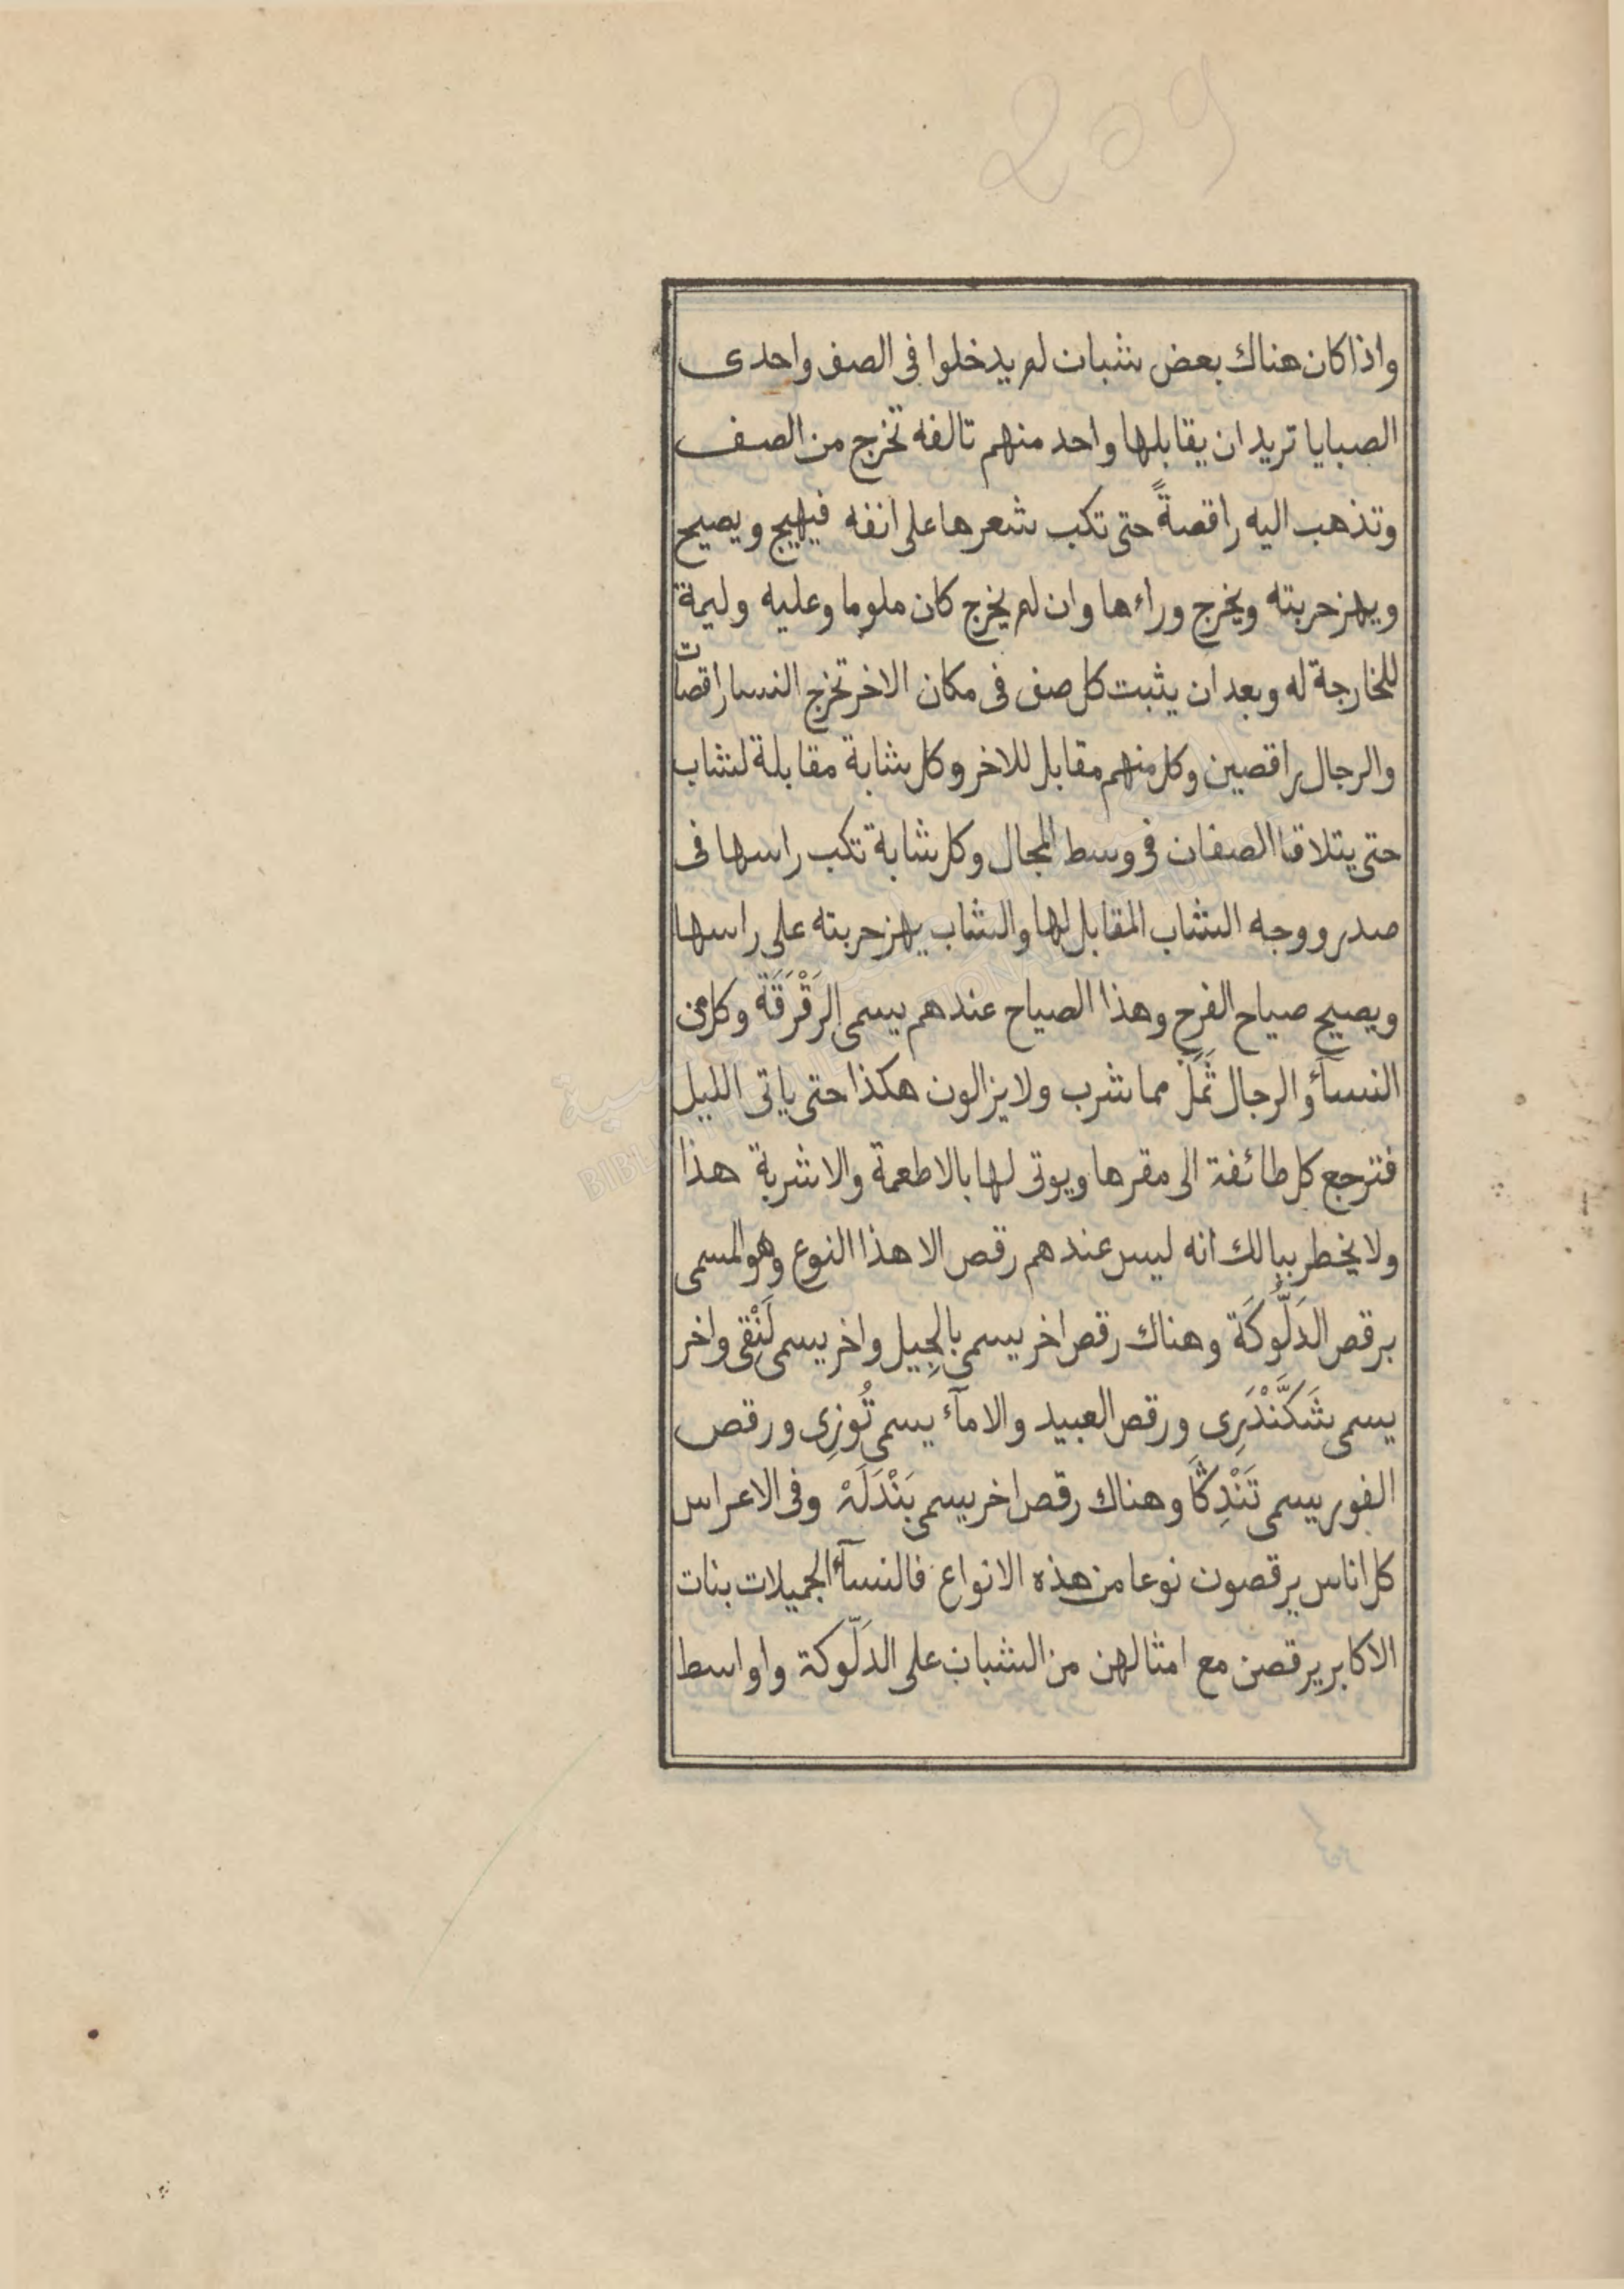 209
واذا كان هناك بعض شبان لم يدخلوا فى الصف واحدى
الصبايا تريد ان يقابلها واحد منهم تالفه تخرج من الصف
وتذهب اليه راقصةً حتى تكب شعرها على انفه فيهيج ويصيح
ويهز حربته ويخرج وراءها وان لم يخرج كان ملوما وعليه وليمة
للخارجة له وبعد ان يثبت كل صف فى مكان الاخر تخرج النسا راقصات
والرجال راقصين وكل منهم مقابل للاخر وكل شابة مقابلة لشاب
حتى يتلاقا الصفان فى وسط المجال وكل شابة تكب راسها فى
صدر ووجه الشاب المقابل لها والشاب يهز حربته على راسها
ويصيح صياح الفرح وهذا الصياح عندهم يسمى الرَقْرَقَة وكل من
النسآء والرجال ثَمِلٌ مما شرب ولا يزالون هكذا حتى ياتى الليل
فترجع كل طائفة الى مقرها ويوتى لها بالاطعمة والاشربة هذا
ولا يخطر ببالك انه ليس عندهم رقص الا هذا النوع وهو المسمى
برقص الدَلُّوكَة وهناك رقص اخر يسمى بالجِيل واخر يسمى لَنْقِى واخر
يسمى شَكَنْدَرِى ورقص العبيد والامآء يسمى تُوزِى ورقص
الفور يسمى تَنْدِكَا وهناك رقص اخر يسمى بَنْدَلَهْ وفى الاعراس
كل اناس يرقصون نوعا من هذه الانواع فالنسآء الجميلات بنات
الاكابر يرقصن مع امثالهن من الشبان على الدَلّوكة واواسط